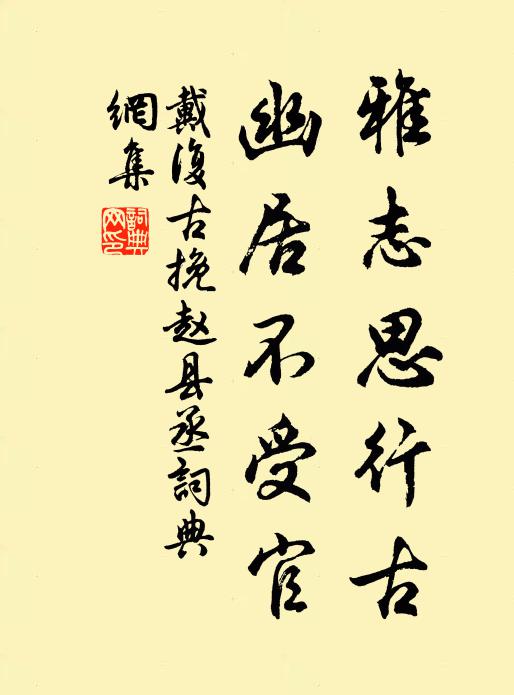 雅志思行古
幽居不受官
戴復古挽赵县丞詞典
網集
詞典
网印